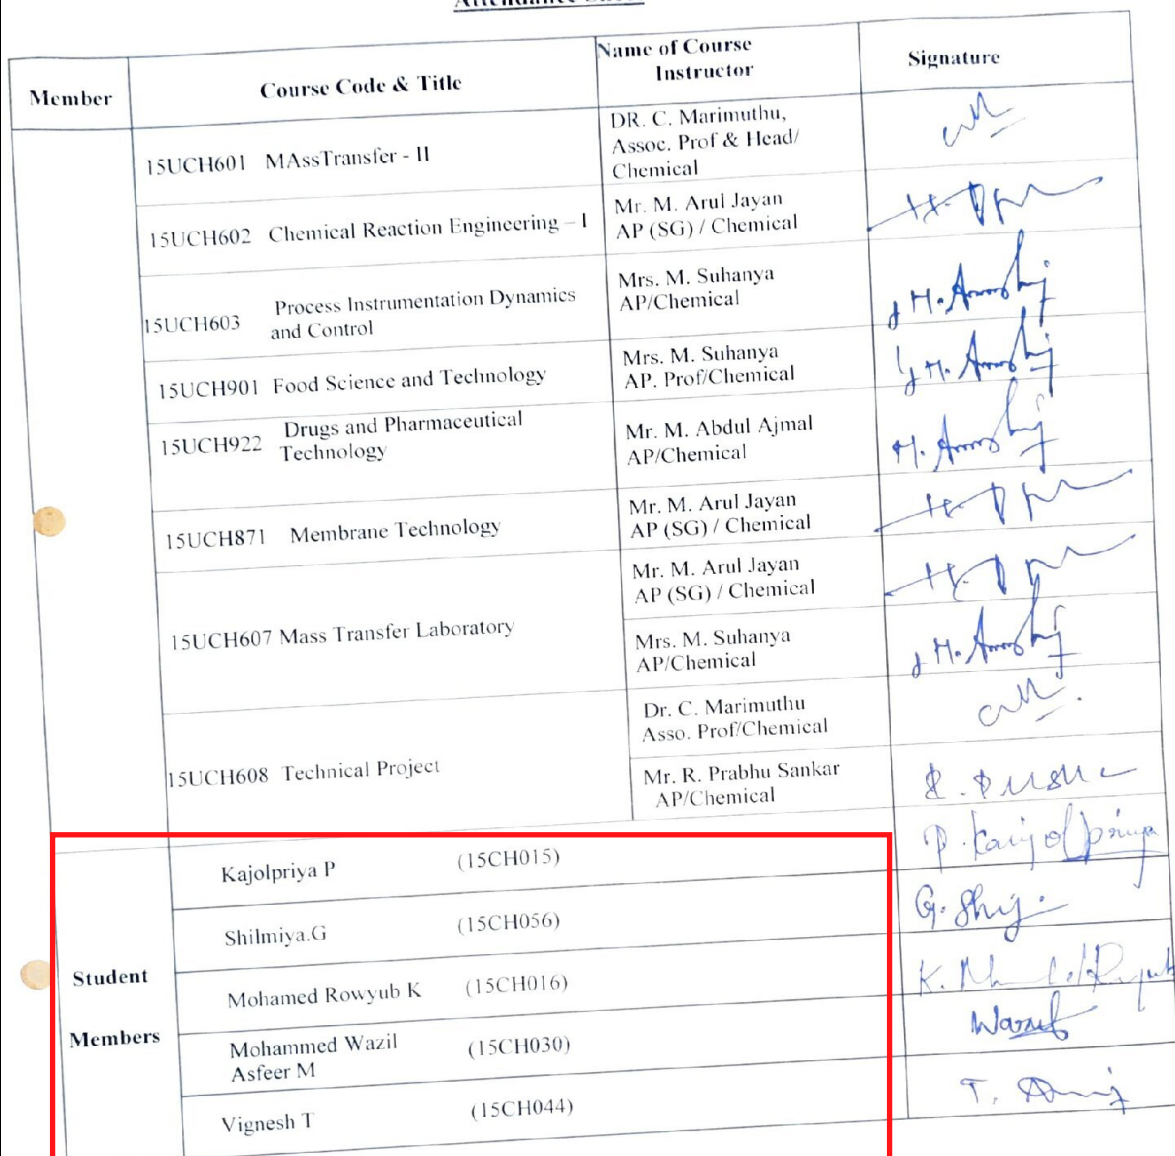 Member
Course Code & Title
Name of Course
Instructor
Signature
15UCH601 MAssTransfer - II
DR. C. Marimuthu,
Assoc. Prof & Head/
Chemical
15UCH602 Chemical Reaction Engineering – I
Mr. M. Arul Jayan
AP (SG) / Chemical
15UCH603 Process Instrumentation Dynamics
and Control
Mrs. M. Suhanya
AP/Chemical
15UCH901 Food Science and Technology
Mrs. M. Suhanya
AP. Prof/Chemical
15UCH922 Drugs and Pharmaceutical
Technology
Mr. M. Abdul Ajmal
AP/Chemical
15UCH871 Membrane Technology
Mr. M. Arul Jayan
AP (SG) / Chemical
15UCH607 Mass Transfer Laboratory
Mr. M. Arul Jayan
AP (SG) / Chemical
Mrs. M. Suhanya
AP/Chemical
15UCH608 Technical Project
Dr. C. Marimuthu
Asso. Prof/Chemical
Mr. R. Prabhu Sankar
AP/Chemical
Student
Members
Kajolpriya P (15CH015)
P. Kaijolpriya
Shilmiya.G (15CH056)
Mohamed Rowyub K (15CH016)
Mohammed Wazil
Asfeer M
(15CH030)
Vignesh T (15CH044)